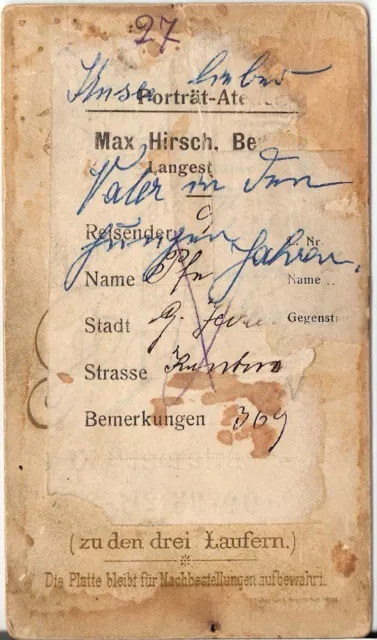 27
Unser lieber
Porträt-Ate
Max Hirsch. Be
Langest
Vater in den
Reisender
jungen Jahren.
Nr.
Name
Name
Stadt
Gegenst
Strasse
Bemerkungen 369
(zu den drei Laufern.)
Die Platte bleibt für Nachbestellungen aufbewahrt.